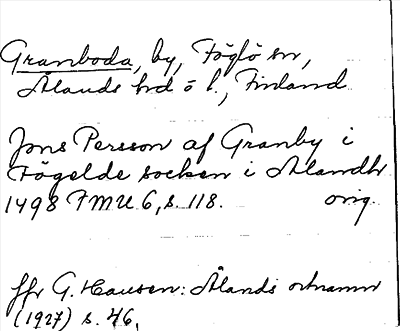 Granboda, by, Föglö sn,
Ålands hd o l., Finland
Jöns Persson af Granby i
Fögelde socken i Alandh
1498 FMU 6, s. 118. orig.
jfr G. Hausen: Ålands ortnamn
(1927) s. 46,